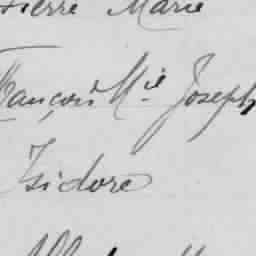 Pierre Marie
François Mie Joseph
Isidore